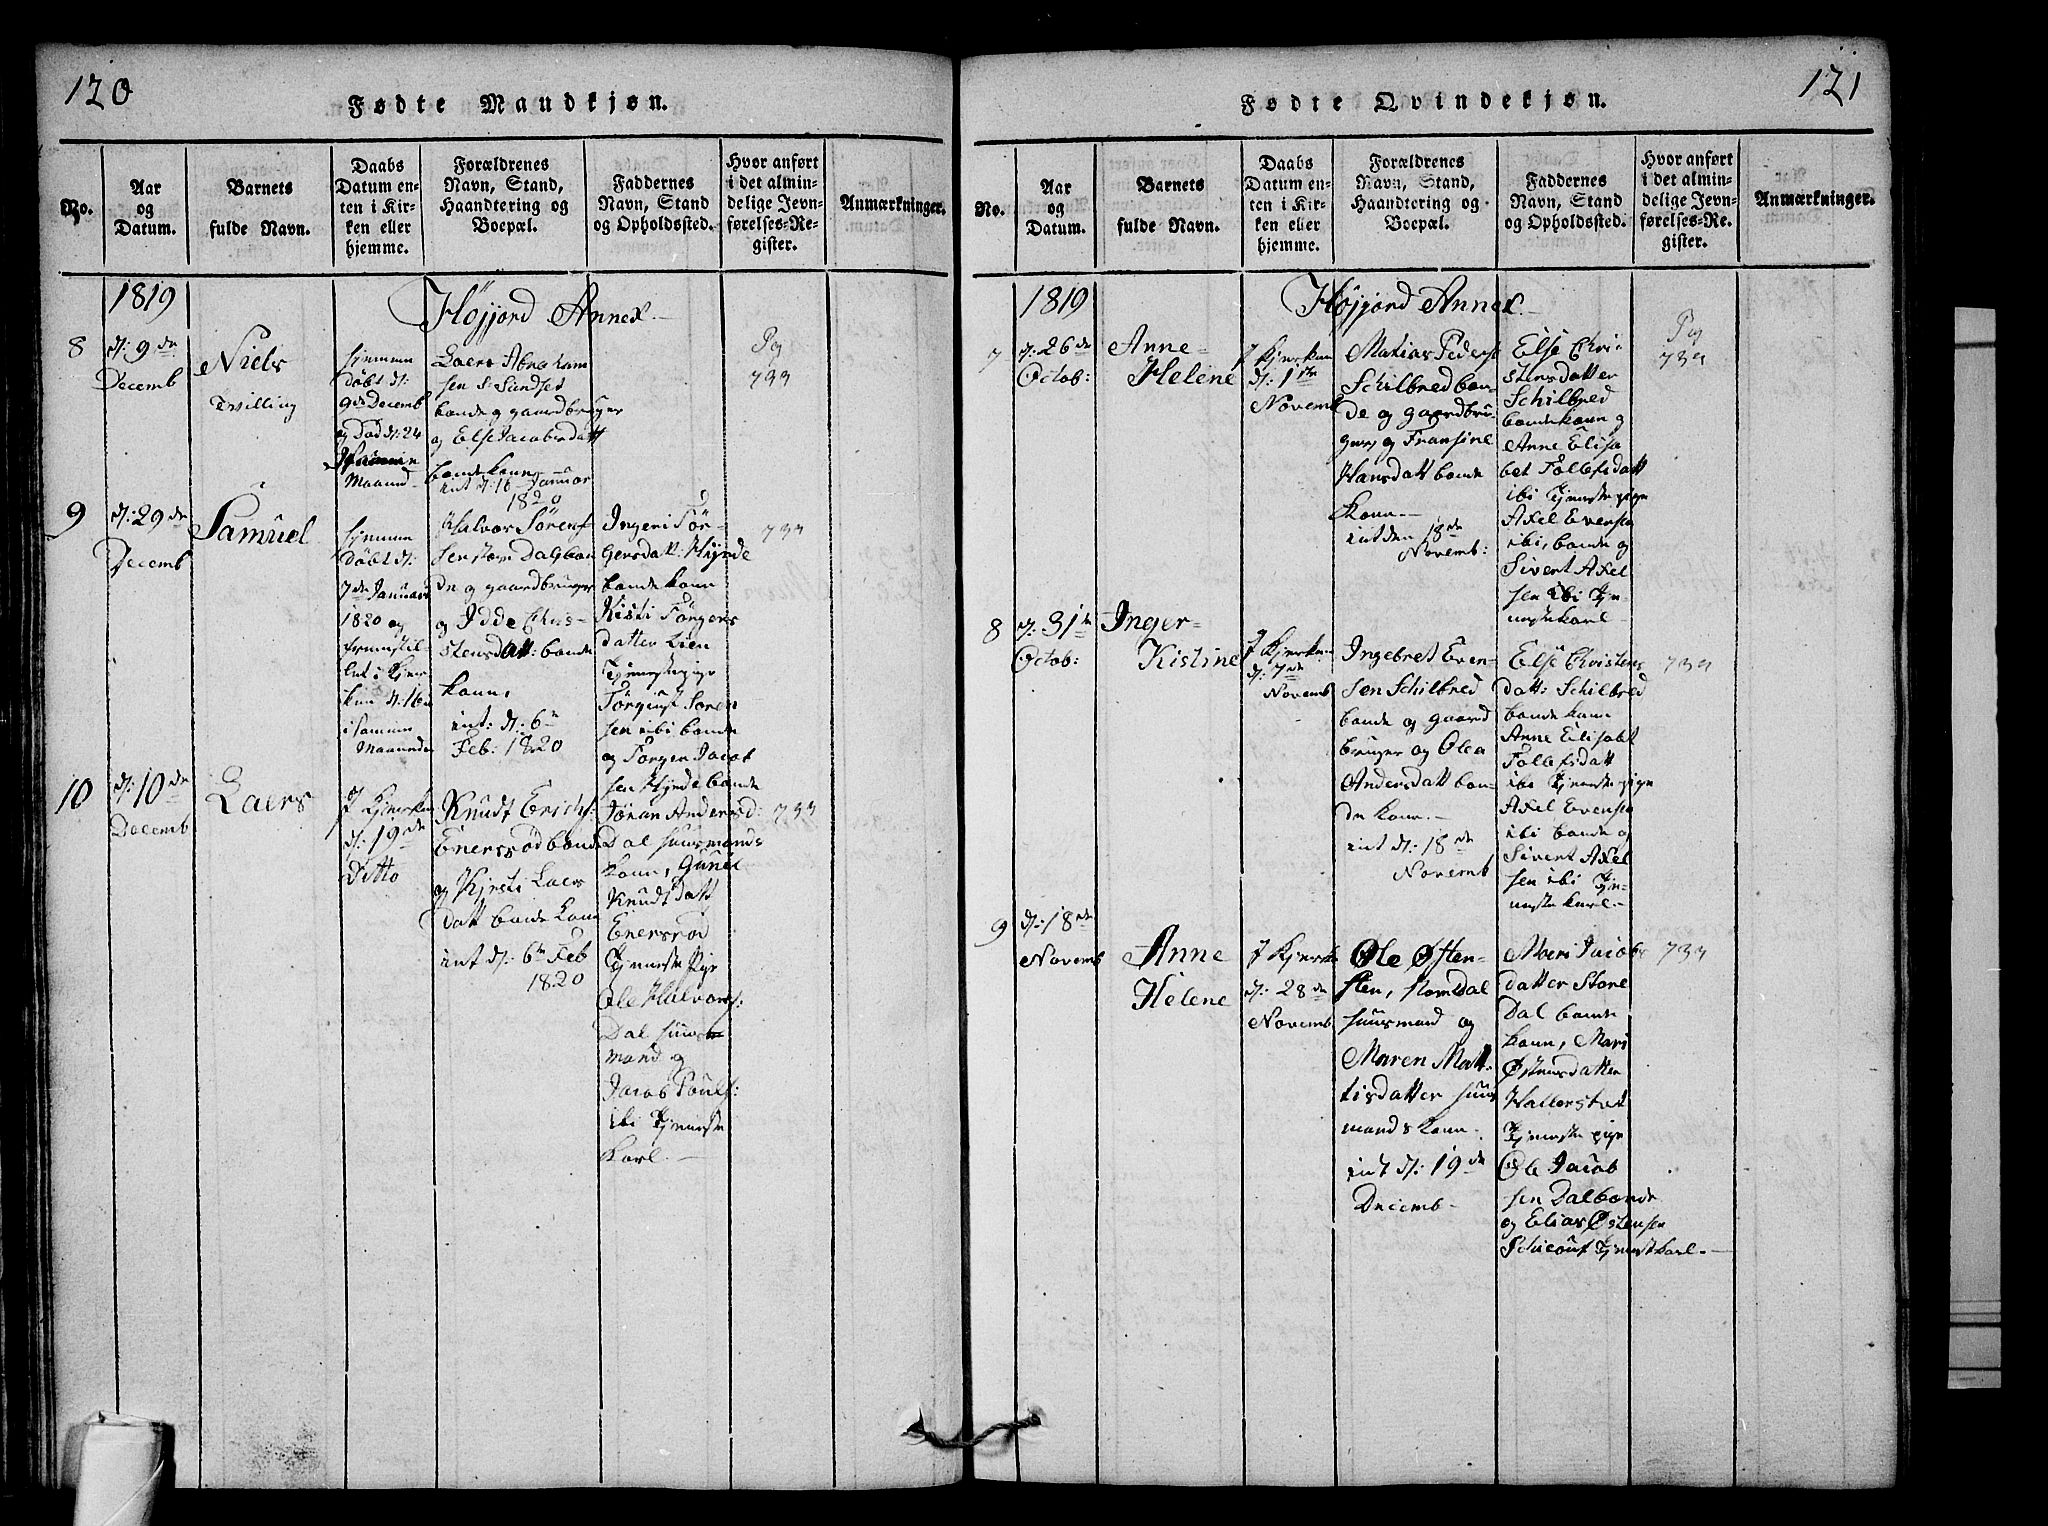 120
Fødte Mandkjøn.
No.
Aar
og
Datum.
Barnets
fulde Navn.
Daabs
Datum en-
ten i Kir-
ken eller
hjemme.
Forældrenes
Navn, Stand,
Haandtering og
Boepæl.
Faddernes
Navn, Stand
og Opholdssted.
Hvor anført
i det almin-
delige Jevn-
førelses-Re-
gister.
Anmærkninger.
1819
Høyjord Annex.
8
d: 9de
Decemb
Niels
Tvilling
hjemme
døbt d:
9de Decemb
og død d: 24
samme
Maaned
Laers Abraham
sen S: Sundset
bonde og gaardbruger
og Else Jacobsdatt
bonde kone
int d: 16 Januar
1820
Pag
733
9
d: 29de
Decemb
Samuel
hjemme
døbt d:
7de Januari
1820 og
fremstil-
let i Kjer
ken d: 16de
i samme
Maanede
Halvor Sørens
sen store Dal bon
de og gaardbruger
og Idde Chri-
stensdatt: bonde
kone,
int: d: 6te
Feb: 1820
Ingeri Jør-
gensdatt: Hynde
bonde kone
Kisti Jørgens
datter Lien
Tjenestepige
Jørgen Søren
sen ibi bonde
og Jørgen Jacob
sen Hynde bonde
733
10
d: 10de
Decemb
Laers
J Kjerken
d: 19de
Ditto
Knudt Erichs:
Enersrød bonde
og Kjrsti Laers
datt bonde kone
int d: 6te Feb
1820
Jøran Andersd:
Dal huusmands
kone, Gunil
Knudtdatt
Enersrød
Tjeneste Pige
Ole Halvors:
Dal huus
mand og
Jacob Pouls:
ibi Tjeneste
Karl.
733
121
Fødte Qvindekjøn.
No.
Aar
og
Datum.
Barnets
fulde Navn.
Daabs
Datum en-
ten i Kir-
ken eller
hjemme.
Forældrenes
Navn, Stand,
Haandtering og
Boepæl.
Faddernes
Navn, Stand
og Opholdssted.
Hvor anført
i det almin-
delige Jevn-
førelses-Re-
gister.
Anmærkninger.
1819
Høyjord Annex.
7
d: 26de
Octob:
Anne-
Helene
J Kjerken
d: 1ste
Novemb
Matias Peders
Schilbred bon-
de og gaardbru-
ger og Fransine
Hansdatt bonde
kone.
int den 18de
Novemb:
Else Chri-
stensdatter
Schilbred
bondekone og
Anne Elisa
bet Tollefsdatt
ibi Tjeneste pige
Axel Evensen
ibi, bonde og
Sivert Axel
sen ibi Tje-
nestekarl.
Pag
733
8
d: 31te
Octob:
Inger-
Kistine
J Kjerken
d: 7de
Novemb
Ingebret Even-
sen Schilbred
bonde og gaard
bruger og Olea
Andersdatt bon-
de kone.
int d: 18de
Novemb
Else Christens
datt: Schilbred
bonde kone
Anne Elisabt
Tollefsdatt
ibi Tjeneste pige
Axel Evensen
ibi bonde og
Sivert Axel
sen ibi Tje-
neste karl.
733
9
d: 18de
Novemb
Anne
Helene
J Kjerken
d: 28de
Novemb
Ole Østen-
sten, storedal
huusmand og
Maren Mat-
tisdatter huus
mands kone.
int d: 19de
Decemb
Mari Jacobs
datter Store
Dal bonde
kone, Mari
Østensdatter
Hallerstad
Tjeneste pige
Ole Jacob
sen Dal bonde
og Elias Østensen
Tjenestkarl.
733